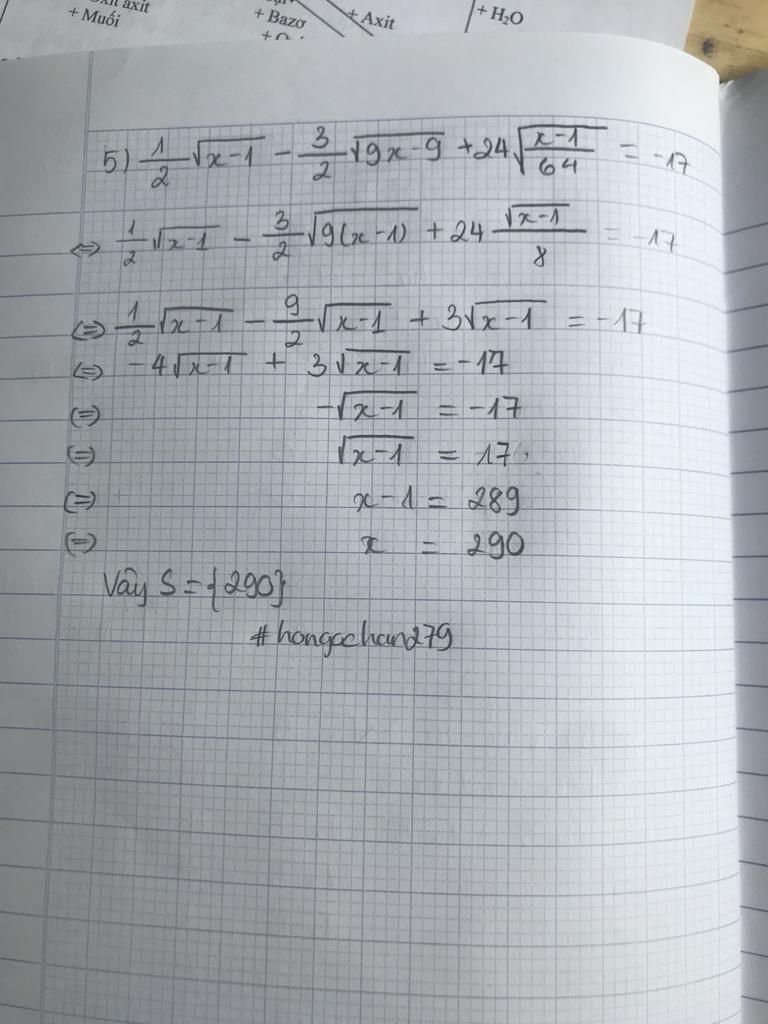 + Muối
+ Bazơ
+ Axit
+ H₂O
5) 1/2 √(x-1) - 3/2 √(9x-9) + 24 √((x-1)/64) = -17
⇔ 1/2 √(x-1) - 3/2 √(9(x-1)) + 24 √(x-1)/8 = -17
⇔ 1/2 √(x-1) - 9/2 √(x-1) + 3√(x-1) = -17
⇔ -4√(x-1) + 3√(x-1) = -17
⇔ -√(x-1) = -17
⇔ √(x-1) = 17
⇔ x-1 = 289
⇔ x = 290
Vậy S = {290}